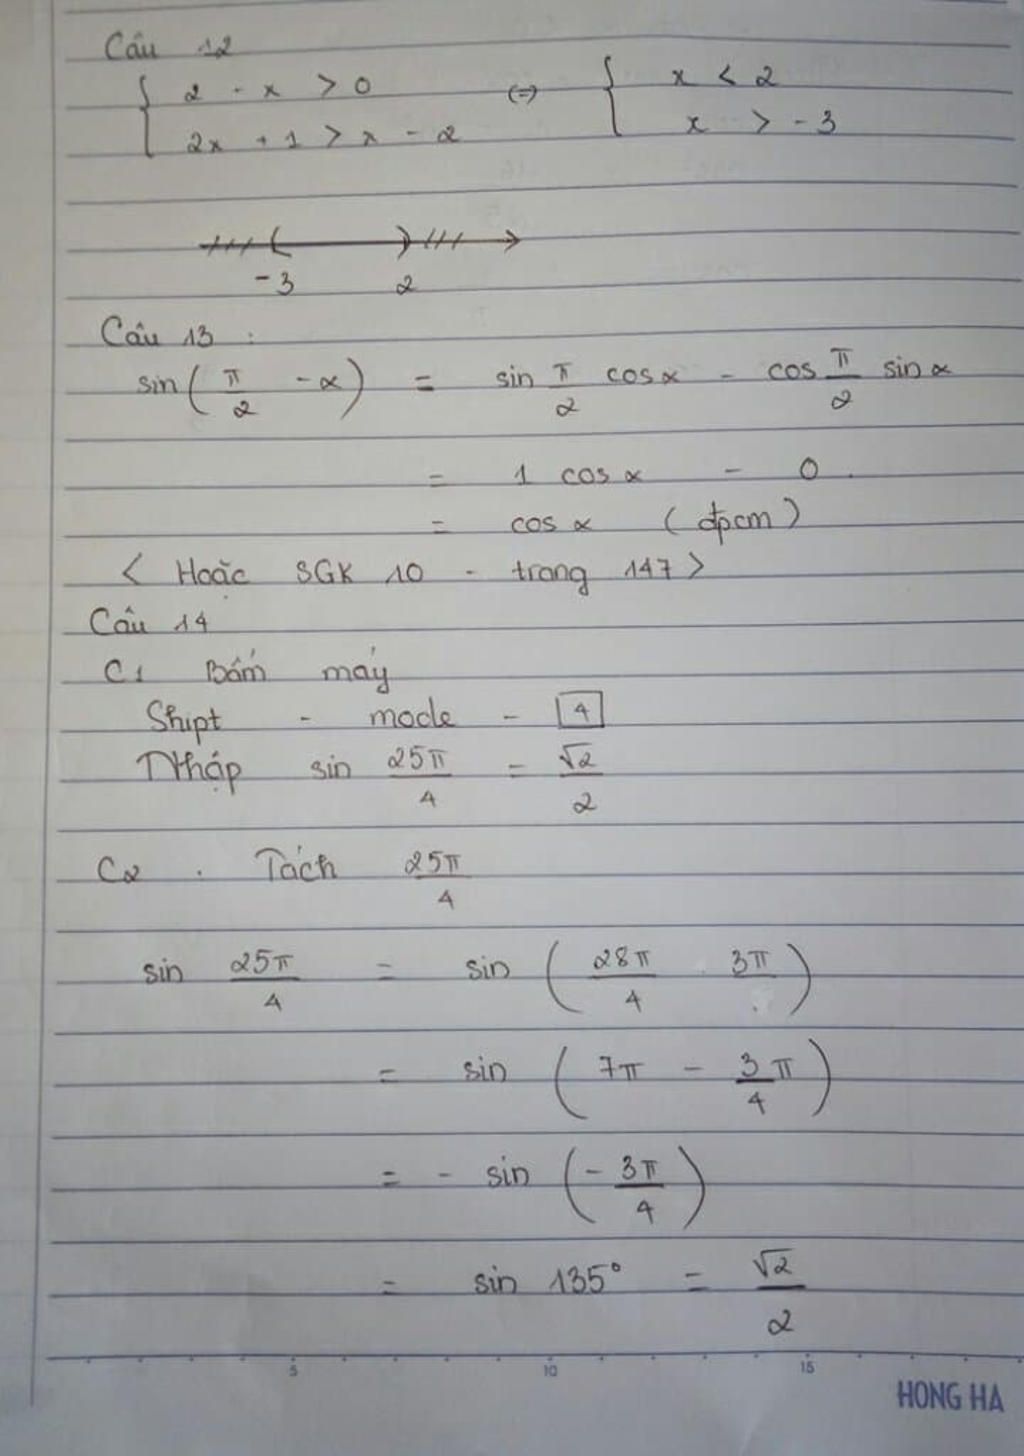 Câu 12
{ 2 - x > 0 (=) { x < 2
2x + 1 > x - 2 x > -3
-3 2
Câu 13 :
sin(π/2 - α) = sin π/2 cosα - cos π/2 sinα
= 1 cosα - 0.
= cosα (đpcm)
< Hoặc SGK 10 - trang 147>
Câu 14
C1 Bấm máy
Shipt - mode - 4
Nhập sin 25π/4 = √2/2
C2 . Tách 25π/4
sin 25π/4 = sin (28π/4 3π)
= sin (7π - 3/4 π)
= - sin (-3π/4)
= sin 135° = √2/2
5 10 15
HONG HA